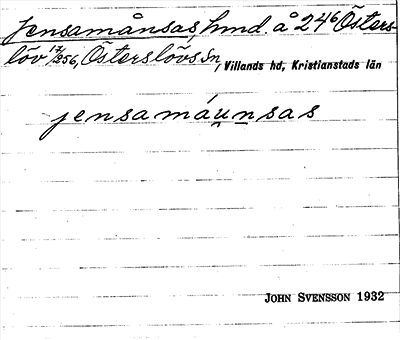 Jensamånsas hmd. å 24⁶ Östers-
löv 17/256, Österslövs sn, Villands hd, Kristianstads län
jensamáu̯n̯sas
JOHN SVENSSON 1932